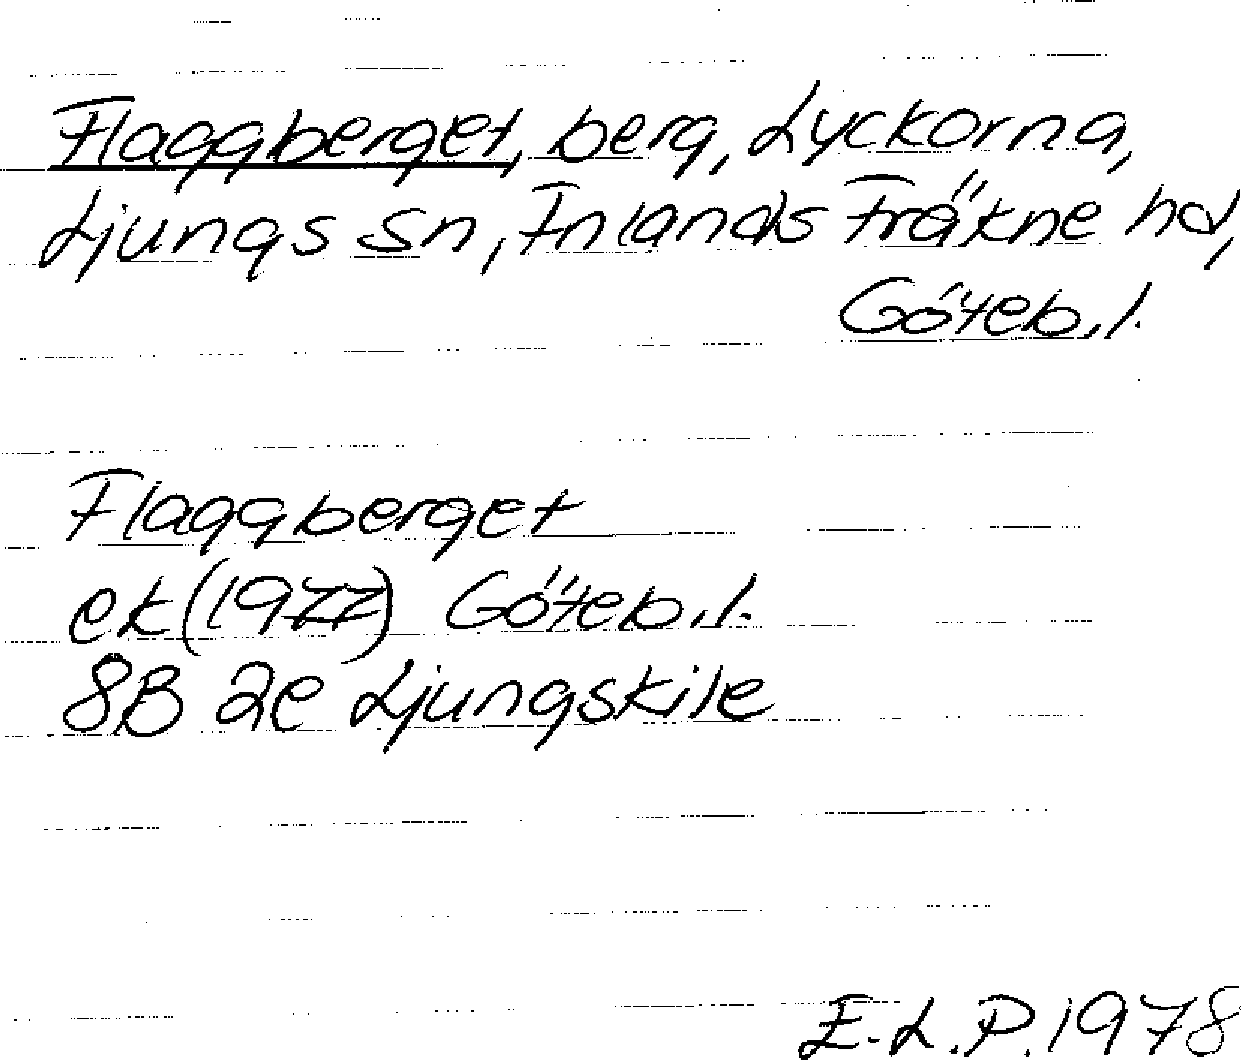 Flaggberget, berg, Lyckorna,
Ljungs sn, Inlands Fräkne hd,
Göteb. l.
Flaggberget
ek (1977) Göteb. l.
8B 2e Ljungskile
E.L.P. 1978